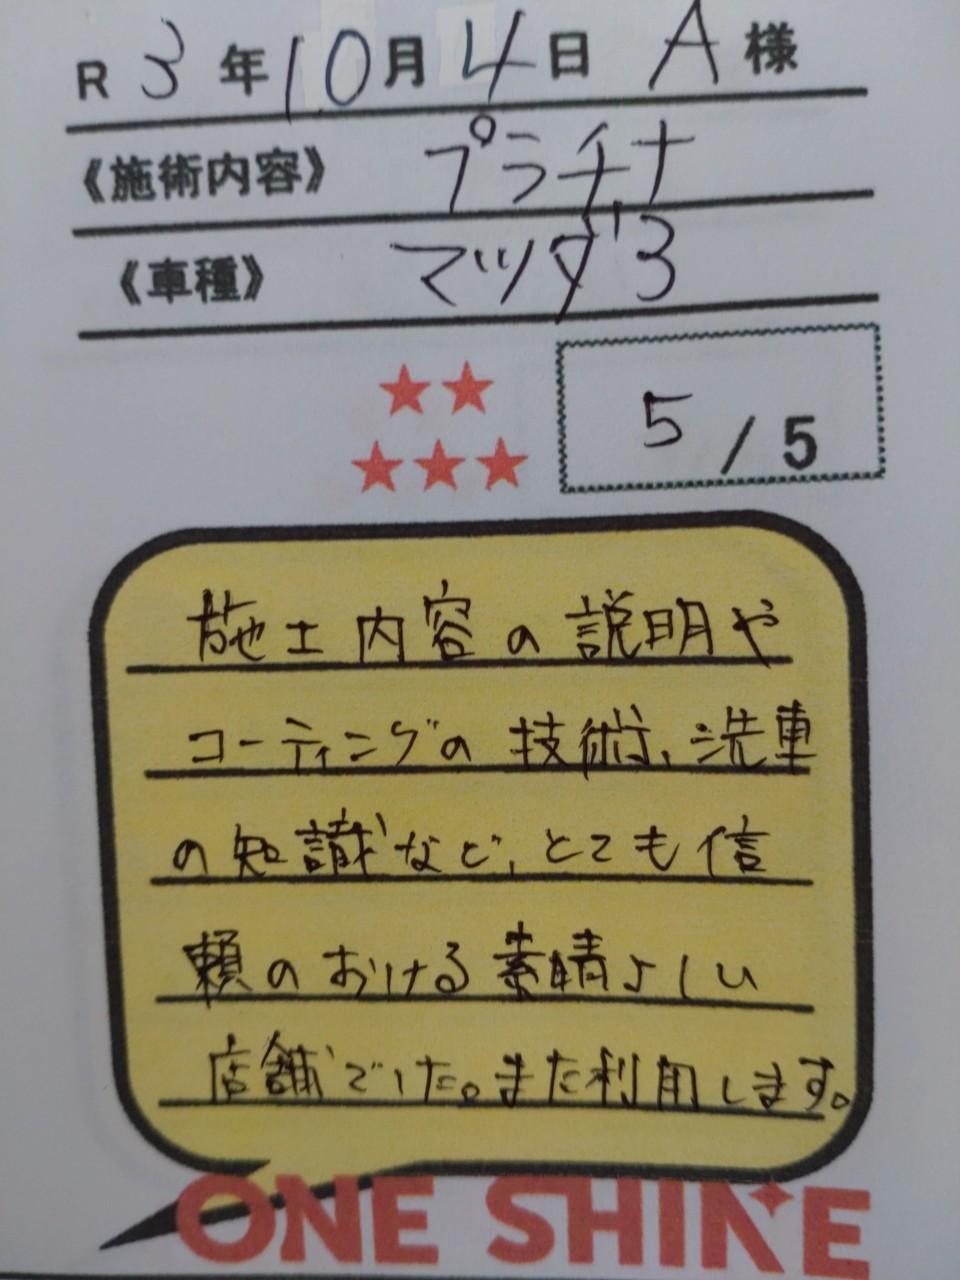 R 3 年 10 月 4 日 A 様
《施術内容》 プラチナ
《車種》 マツダ3
5 / 5
施工内容の説明や
コーティングの技術、洗車
の知識など、とても信
頼のおける素晴らしい
店舗でした。また利用します。
ONE SHINE